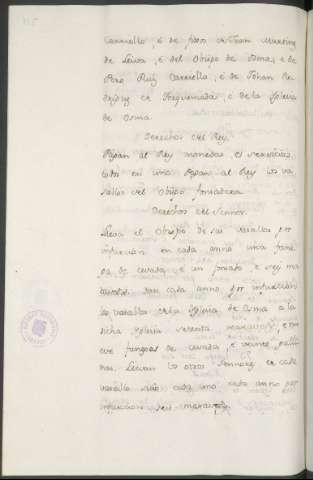 Carriello, é de fijos de Joan Martinez
de Leiva, é del Obispo de Osma, é de
Pero Ruiz Carriello, é de Johan Ro-
driguez de Fraguemada, é de la Iglesia
de Osma.
Derechos del Rey.
Pagan al Rey monedas, é servicios,
todos en uno. Pagan al Rey los va-
sallos del Obispo fonsadera.
Derechos del Señor.
Lieva el Obispo de sus vasallos por
infurcion en cada anno una fane-
ga de cevada, é un
dan cada anno por infurcion
los vasallos de la Iglesia de Osma a la
dicha Iglesia sesenta maravedis, é nue-
ve fanegas de cevada, é veinte galli-
nas. Lievan los otros Sennores de cada
vasallo suio cada uno cada anno por
infurcion seis maravedis.